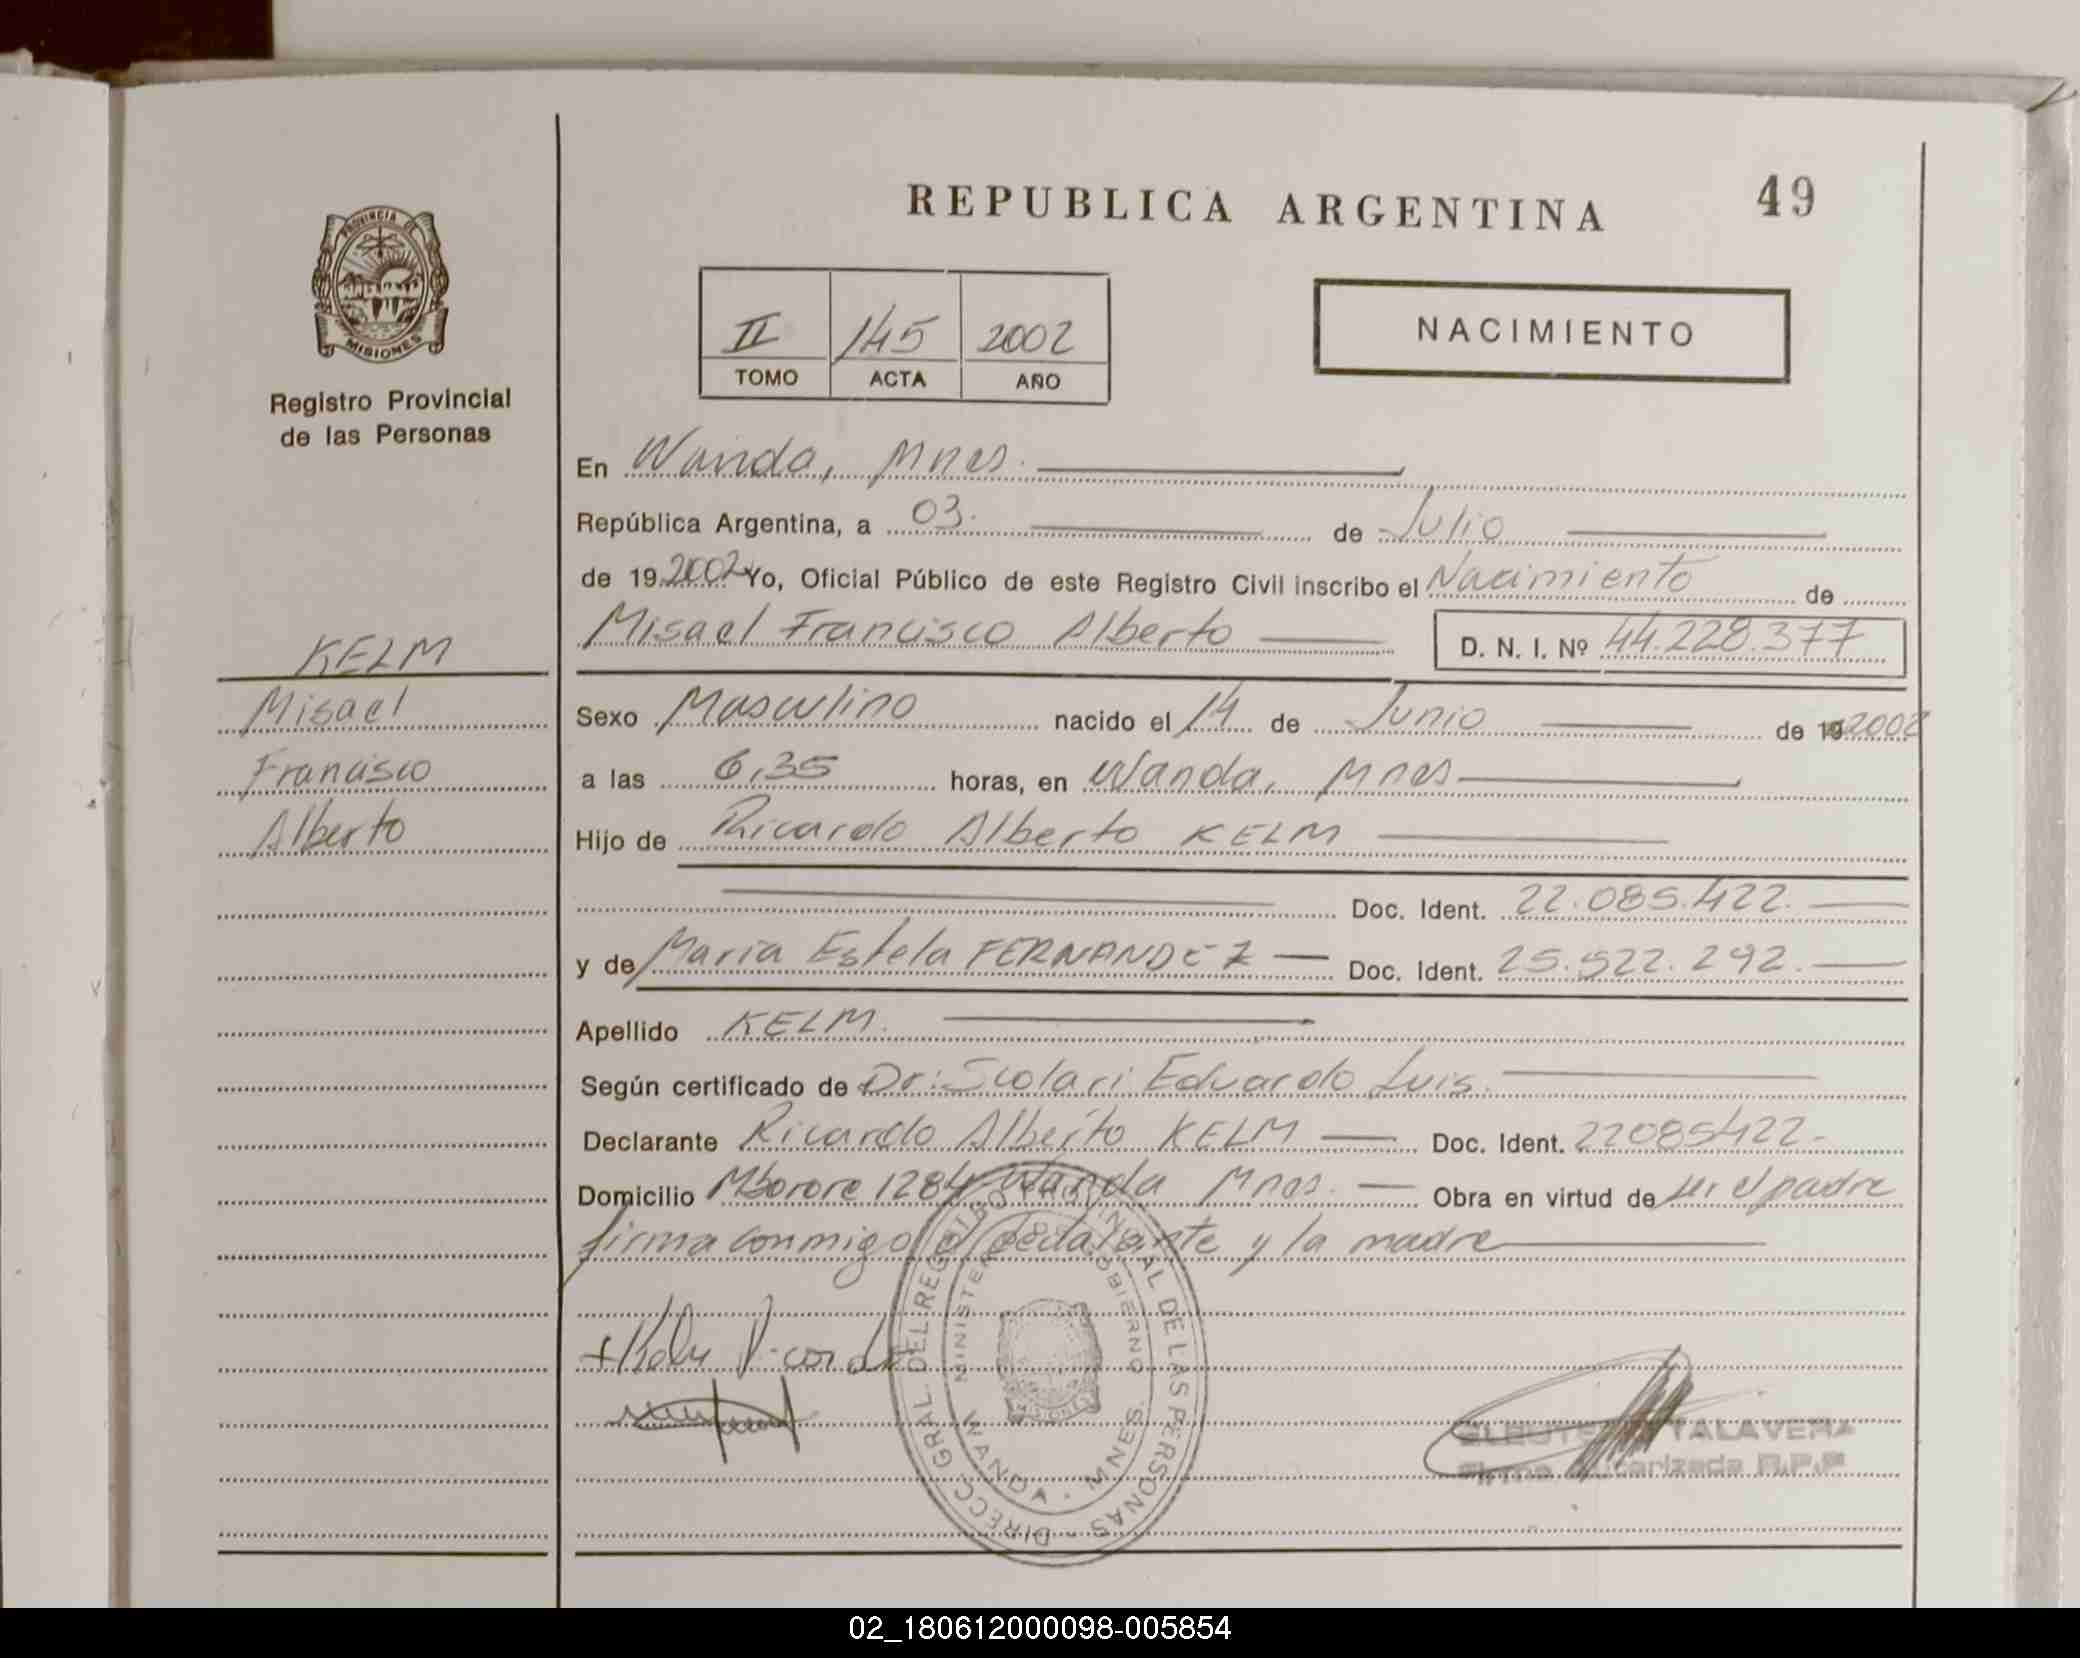 REPUBLICA ARGENTINA
49
PROVINCIA DE
MISIONES
Registro Provincial
de las Personas
II 145 2002
TOMO ACTA AÑO
NACIMIENTO
En Wanda, Mnes.
República Argentina, a 03. de Julio
de 19 2002 Yo, Oficial Público de este Registro Civil inscribo el Nacimiento de
Misael Francisco Alberto D. N. I. Nº 44.228.377
KELM
Misael
Francisco
Alberto
Sexo Masculino nacido el 14 de Junio de 19 2002
a las 6,35 horas, en Wanda, Mnes
Hijo de Ricardo Alberto KELM
Doc. Ident. 22.085.422.
y de Maria Estela FERNANDEZ Doc. Ident. 25.522.292.
Apellido KELM.
Según certificado de Dr: Scolari Eduardo Luis.
Declarante Ricardo Alberto KELM Doc. Ident. 22085422.
Domicilio Mborore 1284 Wanda Mnes. Obra en virtud de ser el padre
firma conmigo el declarante y la madre
DIRECC. GRAL. DEL REGISTRO PROVINCIAL DE LAS PERSONAS
MINISTERIO DE GOBIERNO
WANDA - MNES.
TALAVERA
Firma Autorizada R.P.P
02_180612000098-005854